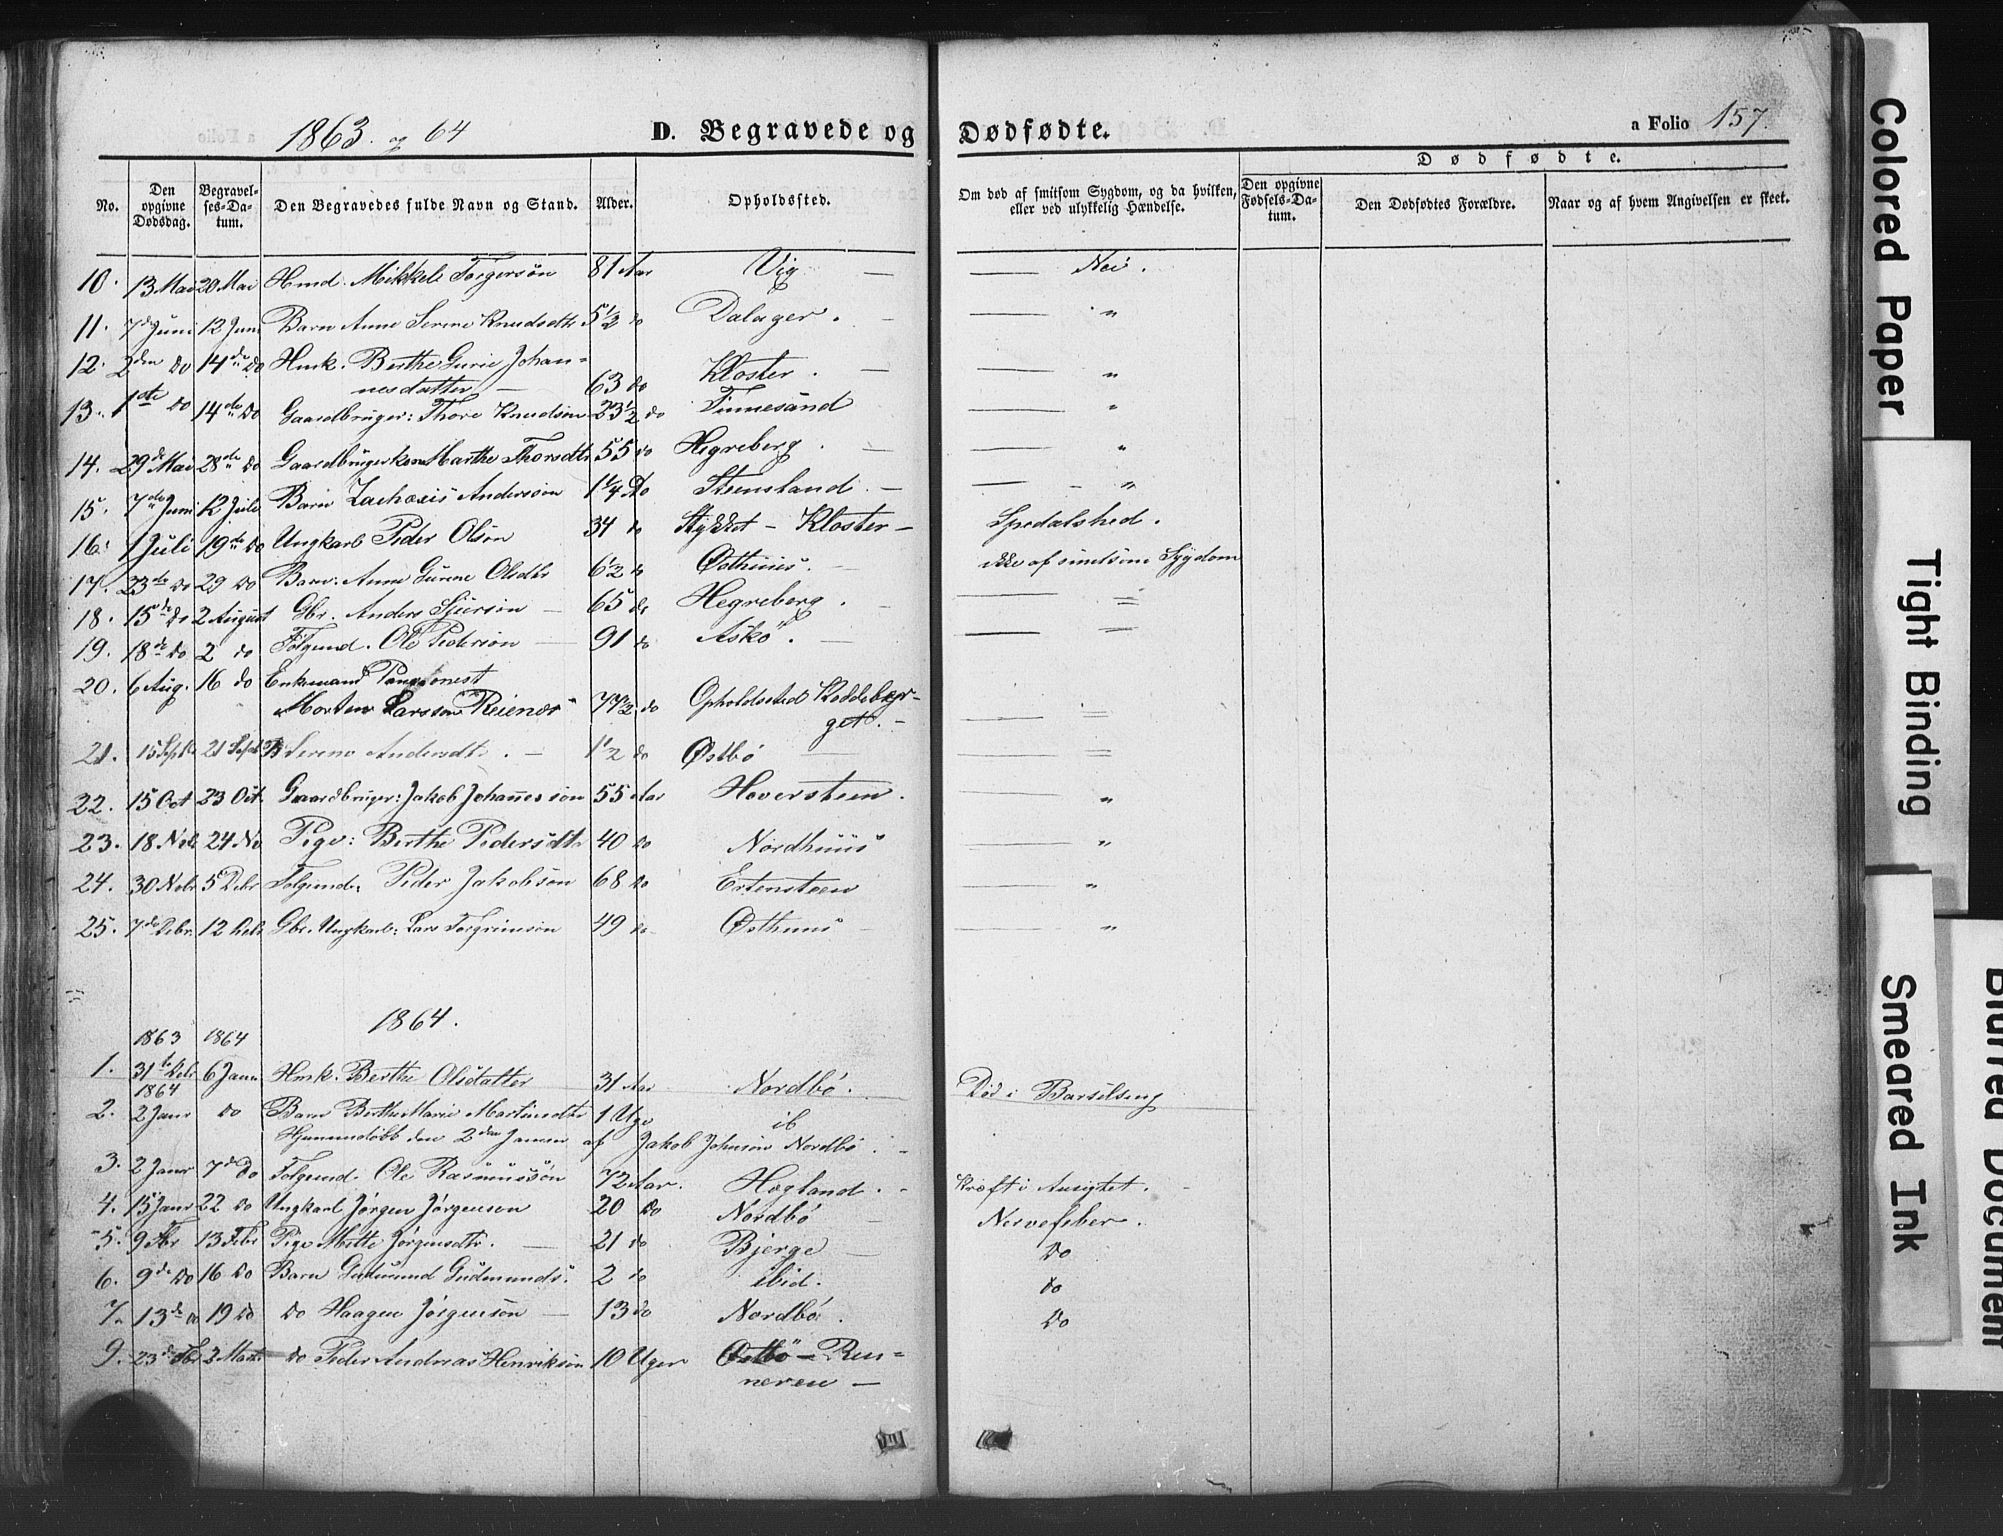 1863. og 64 D. Begravede og Dødfødte. a Folio 157.
Dødfødte.
No. Den opgivne Dødsdag. Begravelses-Datum. Den Begravedes fulde Navn og Stand. Alder. Opholdssted. Om død af smitsom Sygdom, og da hvilken, eller ved ulykkelig Hændelse. Den opgivne Fødsels-Datum. Den Dødfødtes Forældre. Naar og af hvem Angivelsen er skeet.
10. 13 Mai 20 Mai Hmd. Mikkel Torgersøn 81 Aar Vig — — Nei.
11. 7d Juni 12 Juni Barn Anne Serene Knudsdtr 5 1/2 do Dalager. — — "
12. 2den do 14de do Hmk. Berthe Gurie Johan=
nesdatter — 63 do Kloster. — — "
13. 1ste do 14de do Gaardbruger: Thore Knudsøn 23 1/2 do Finnesand — "
14. 29d Mai 28de do Gaardbrugerkone Marthe Thorsdtr 55 do Hegreberg. — — "
15. 7de Juni 12 Juli Barn Zacharis Andersøn 1 1/4 Do Steensland. — — "
16. 1 Juli 19de do Ungkarl Peder Olsøn 34 do Stykket - Kloster — Spedalskhed.
17. 23de do 29 do Barn: Anne Gurene Olsdtr 6 1/2 do Østhuus. — ikke af smitsom Sygdom
18. 15de do 2 August Gbr. Anders Sjursøn — 65 do Hegreberg. — — =
19. 18de do 2 do Følgemd. Ole Pedersøn — 91 do Askø. — — =
20. 6 Aug. 16 do Enkemand Pensionist
Morten Larsson Reienæs 77 1/2 do Opholdssted Koddeber=
get. — — =
21. 15 Sept 21 Sept B Serene Andersdtr. — 1 1/2 do Østbø — — =
22. 15 Oct 23 Oct. Gaardbruger: Jakob Johannessøn 55 Aar Haversteen. — "
23. 18 Nobr 24 No Pige: Berthe Pedersdtr 40 do Nordhuus — "
24. 30 Nobr 5 Debr Følgemd: Peder Jakobsøn 68 do Ertensteen — "
25. 7de Debr. 12 Debr Gbr. Ungkarl: Lars Torgrimsøn 49 do Østhuus — — "
1864.
1863 1864
1. 31te Debr 6 Janu Hmk. Berthe Olsdatter 31 Aar Nordbø. Død i Barselseng
1864
2. 2 Janr do Barn Berthe Marie Martinsdtr 1 Uge ib
Hjemmedøbt den 2den Januar af Jakob Johnsøn Nordbø.
3. 2 Janr 7d Do Følgemd. Ole Rasmussøn 72 Aar. Hogland. Kræft i Ansigtet.
4. 15 Janr 22 do Ungkarl Jørgen Jørgensøn 20 do Nordbø — Nervefeber.
5. 9 Fbr 13 Febr Pige Mette Jørgensdtr. — 21 do Bjerge — Do
6. 9de do 16 do Barn Gudmund Gudmunds. 2 do ibid. do
7. 13de do 19 do do Haagen Jørgensøn — 13 do Nordbø. Do
9. 23d Fbr 2 Marts do Peder Andreas Henriksøn 10 Uger Østbø — Ren=
neren —
Colored Paper
Tight Binding
Smeared Ink
Blurred Document